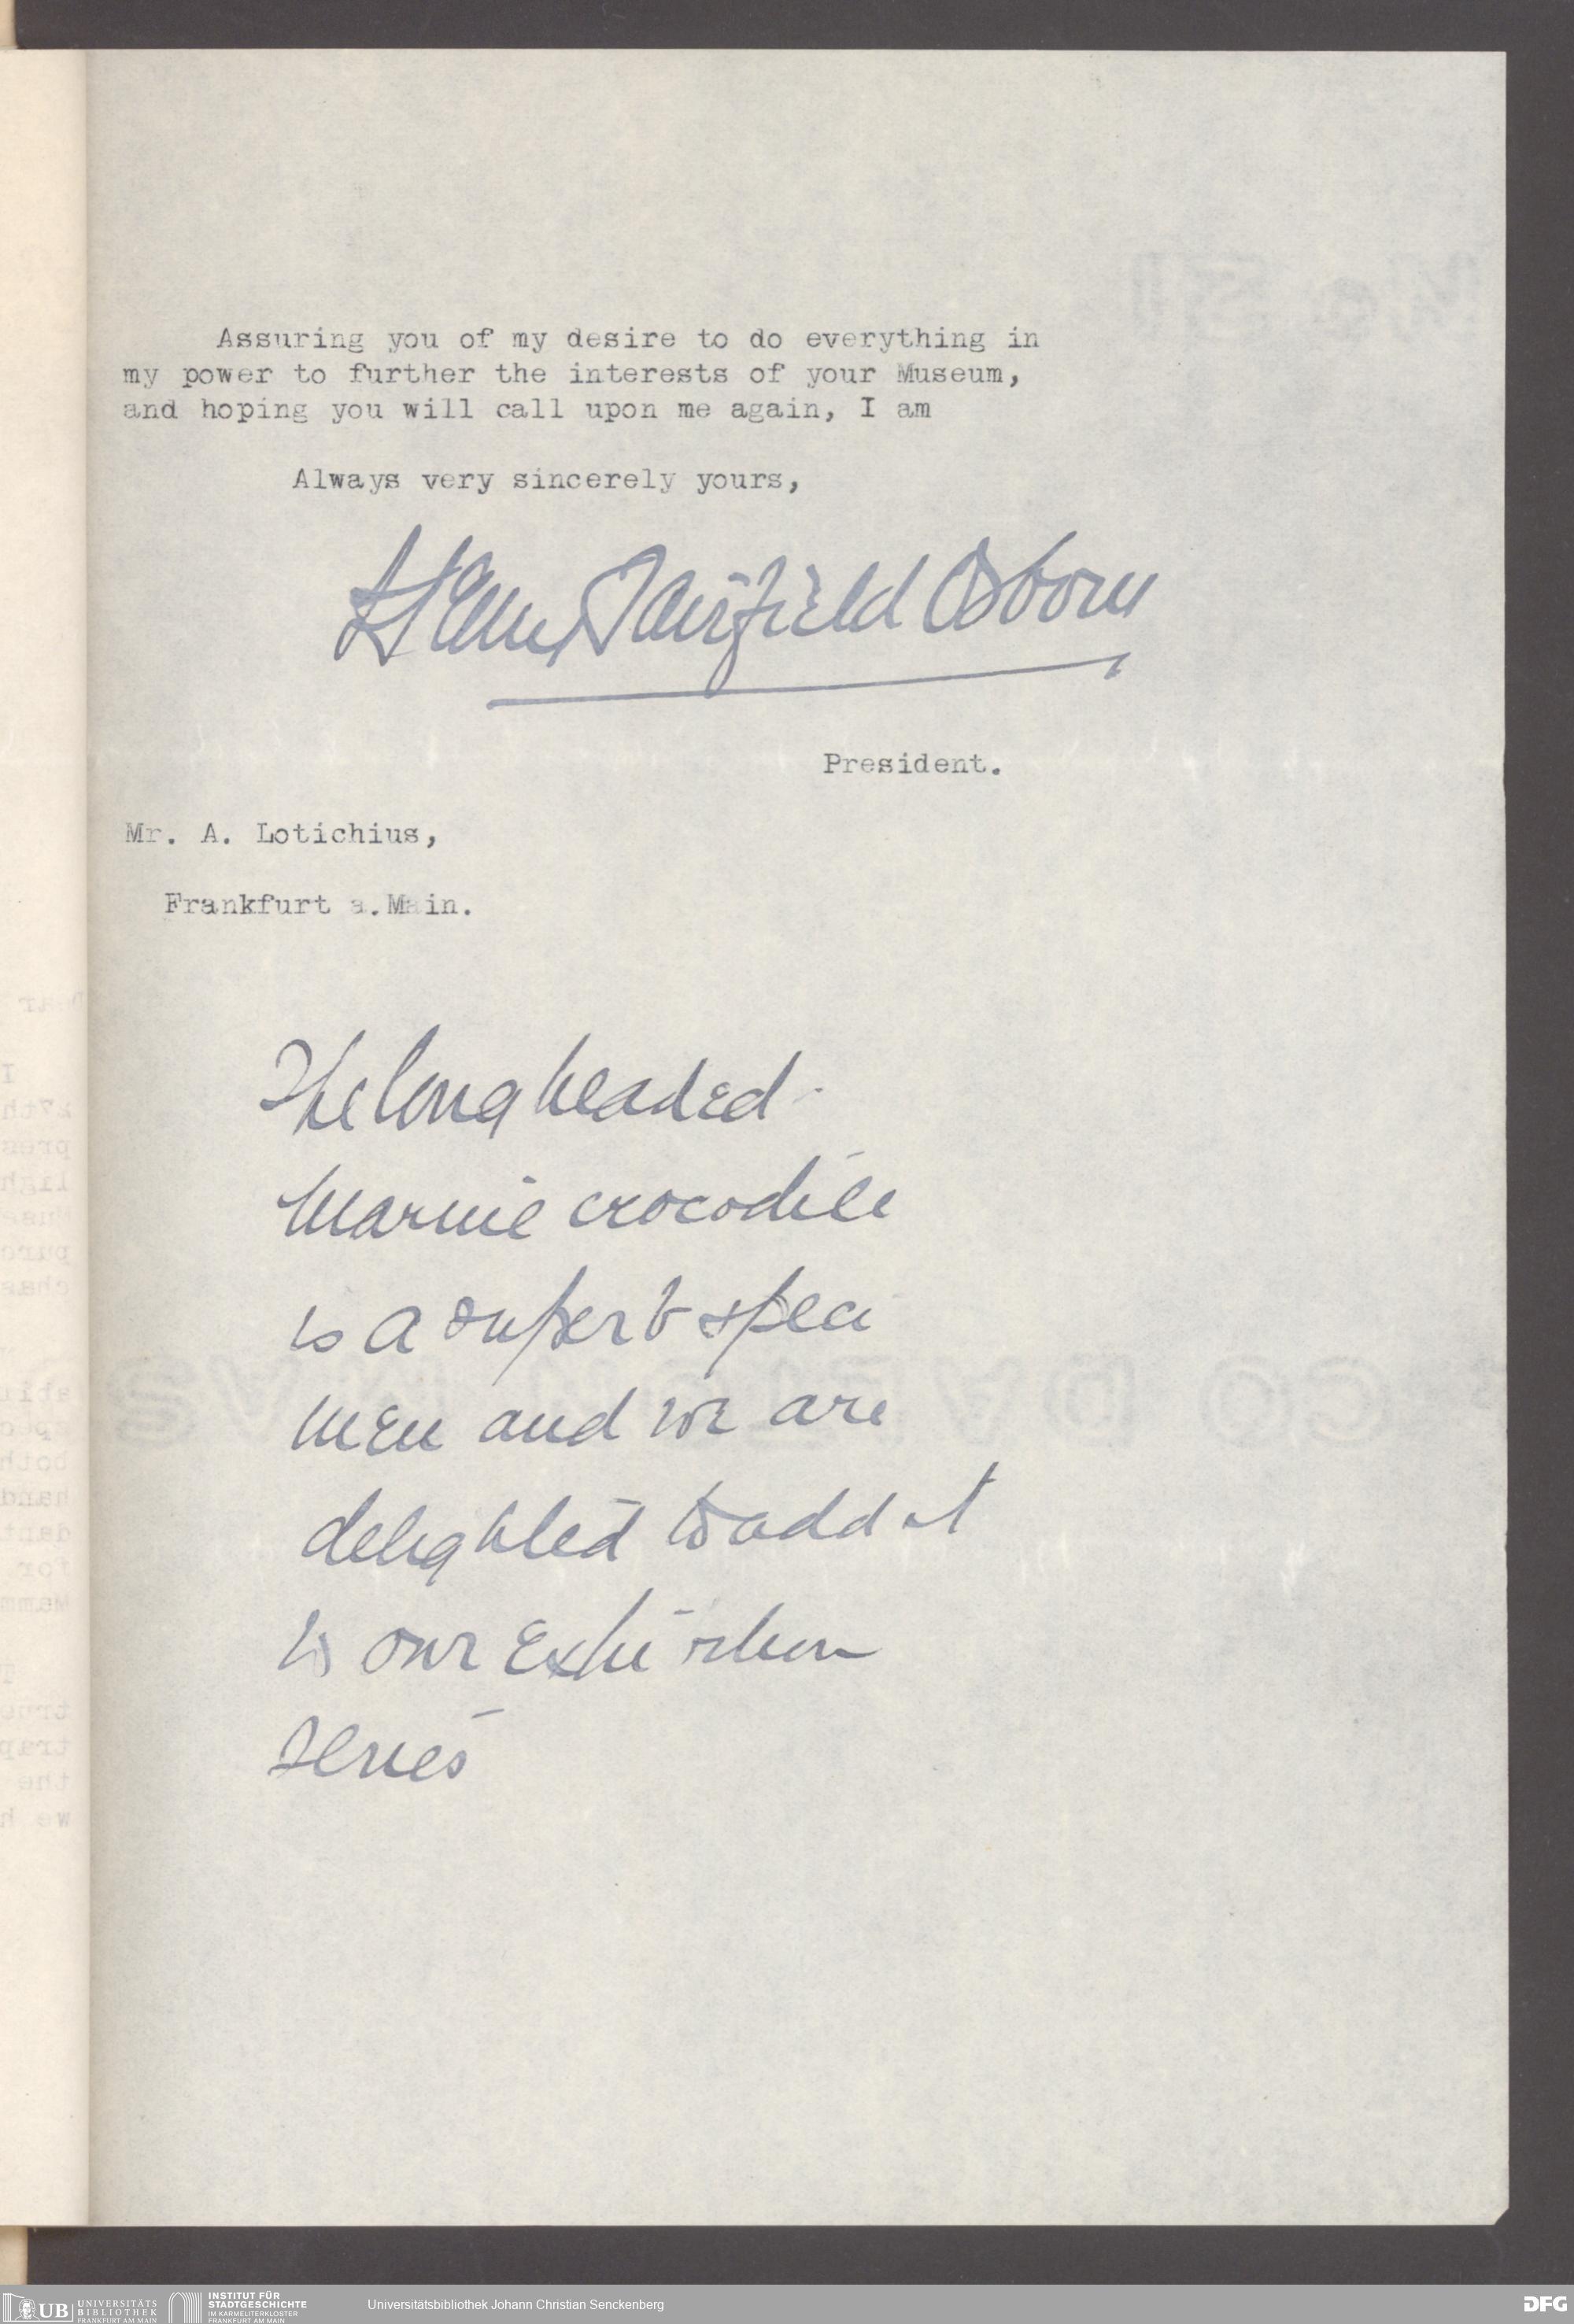 Assuring you of my desire to do everything in
my power to further the interests of your Museum,
and hoping you will call upon me again, I am
Always very sincerely yours,
Henry Fairfield Osborn
President.
Mr. A. Lotichius,
Frankfurt a.Main.
The long headed
Marine crocodile
is a superb speci
men and we are
delighted to add it
to our Exhibition
series
UB UNIVERSITÄTS
BIBLIOTHEK
FRANKFURT AM MAIN
INSTITUT FÜR
STADTGESCHICHTE
IM KARMELITERKLOSTER
FRANKFURT AM MAIN
Universitätsbibliothek Johann Christian Senckenberg
DFG